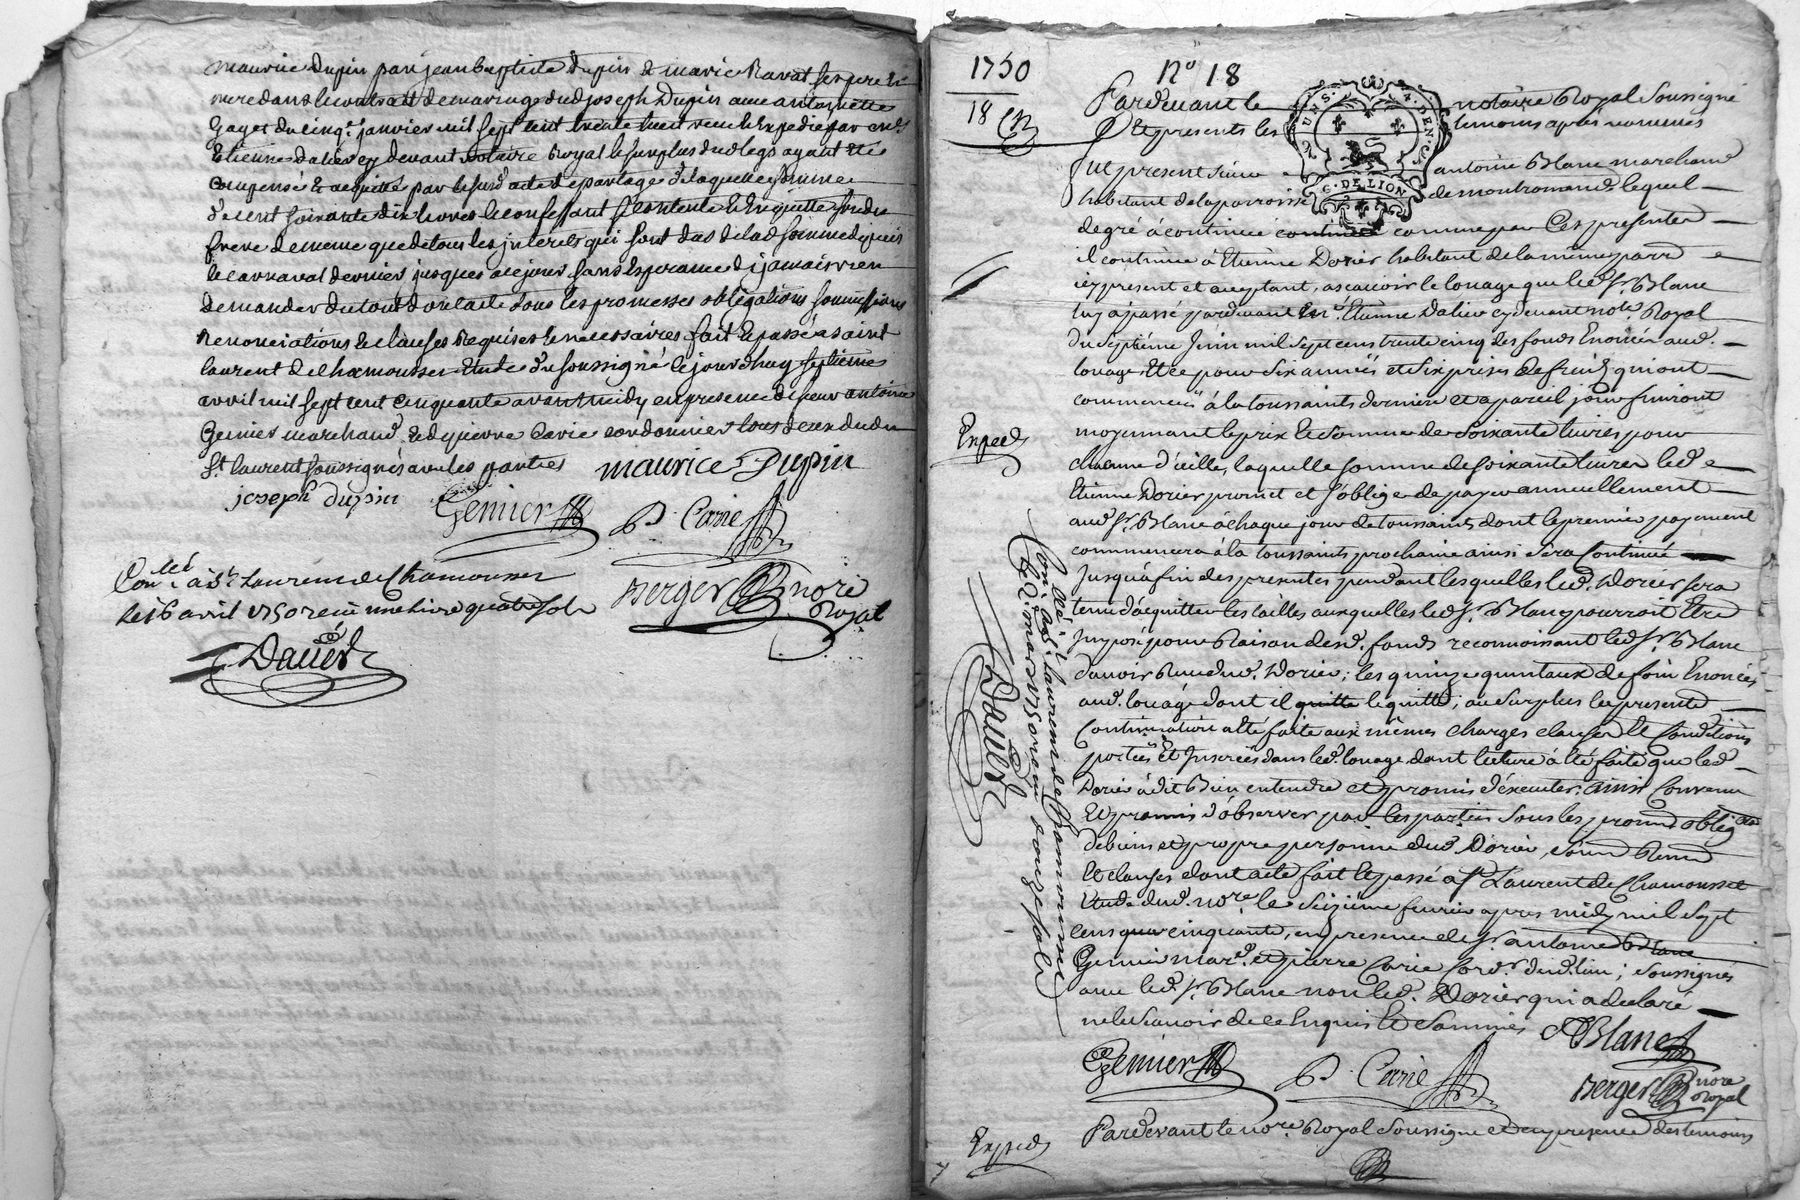 maurice dupin par jean baptiste dupin & marie Ravat ses pere &
mere dans le contrat de mariage dud joseph Dupin avec antoinette
Gages du cinqe janvier mil sept cent trente huit receu & expedié par me
Etienne dalier cy devant notaire Royal le surplus dud legs ayant été
compensé & acquitté par led acte de partage de laquelle somme
de cent soixante dix livres le confessant se contente & en quitte sond
frere de meme que de tous les interets qui sont dus de lad somme depuis
le carnaval dernier jusques a ce jour sans esperance d y jamais rien
demander du tout dont acte sous les promesses obligations soumissions
renonciations & clauses requises & necessaires fait & passé a saint
laurent de chamousset Etude du soussigné le jourdhuy septieme
avril mil sept cent cinquante avant midy en presence de sieur antoine
Genier marchand & de pierre Carie cordonnier tous deux dud
St laurent soussignés avec les parties maurice Dupin
joseph dupin Genier P. Carié
Conllé à St Laurent de Chamousset
le 16 avril 1750 receu une livre quatre sols
Berger nore Royal
Dalier
1750 No 18
18
GEN. DE LION
Pardevant le notaire Royal Soussigné
Et presents les temoins apres nommés
fut present sieur antoine Blanc marchand
habitant de la parroisse de montromand lequel
de gré à continué continué comme par Ces presentes
il continüe à Etienne Dorier habitant de la même parr
icy present et acceptant, ascavoir le louage que led Sr. Blanc
luy a passé pardevant me. Etienne Dalier cy devant note. Royal
du septiéme Juin mil sept cens trente cinq des fonds Enoncés aud.
louage Et ce pour six années et six prises de fruits qui ont
commencé à la toussaints derniere et a pareil jour finiront
moyennant le prix & somme de soixante livres pour
Expedé
chacune d'icelle, laquelle somme de soixante livres led
Etienne Dorier promet et s'oblige de payer annuellement
aud Sr. Blanc à chaque jour de toussaints, dont le premier payement
commencera à la toussaints prochaine ainsi sera Continué
Jusqu'a fin des presentes pendant lesquelles led. Dorier sera
tenu d'acquitter les tailles auxquelles led Sr. Blanc pourroit Etre
Imposé pour Raison desd. fonds reconnoissant led Sr. Blanc
d'avoir Receu dud. Dorier, les quinze quintaux de foin Enoncés
aud. louage dont il quitte le quitte; au surplus la presente
Continuation a été faite aux mêmes charges clauses & Conditions
portées Et Inserées dans led. louage dont lecture a été faite que led
Dorier à dit Bien entendre et promis d'éxécuter; ainsi Convenu
Et promis d'observer par les parties sous les prom. oblig on
de biens et propre personne dud Dorier, soum Renon
Et clauses dont acte fait & passé a St Laurent de Chamousset
Etude dud. nore. le Seiziéme fevrier apres midy mil Sept
cens quar cinquante, en presence de Sr antoine Blanc
Genier mard. et pierre Carie Cord.r dud. lieu; Soussignés
avec led. Sr. Blanc non led. Dorier qui a declaré
ne le Scavoir de ce Enquis & Sommés
ABlanc
Genier P. Carié Berger nore Royal
Conllé à St. laurent de Chamousset
le 2 mars 1750 receu douze sols
Dalier
Expedé
Pardevant le nore. Royal Soussigné et en presence des temoins